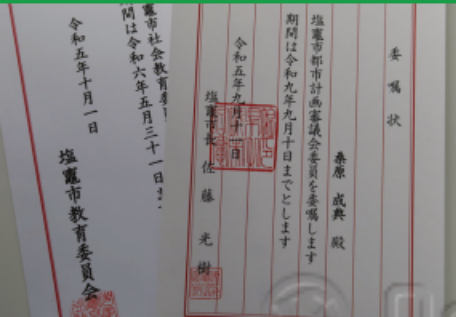 委嘱状
桑原 成典 殿
塩竈市都市計画審議会委員を委嘱します
期間は令和九年九月十日までとします
令和五年九月十一日
塩竈市長 佐藤 光樹
竈市社会教育委
間は令和六年五月三十一日ま
令和五年十月一日
塩竈市教育委員会